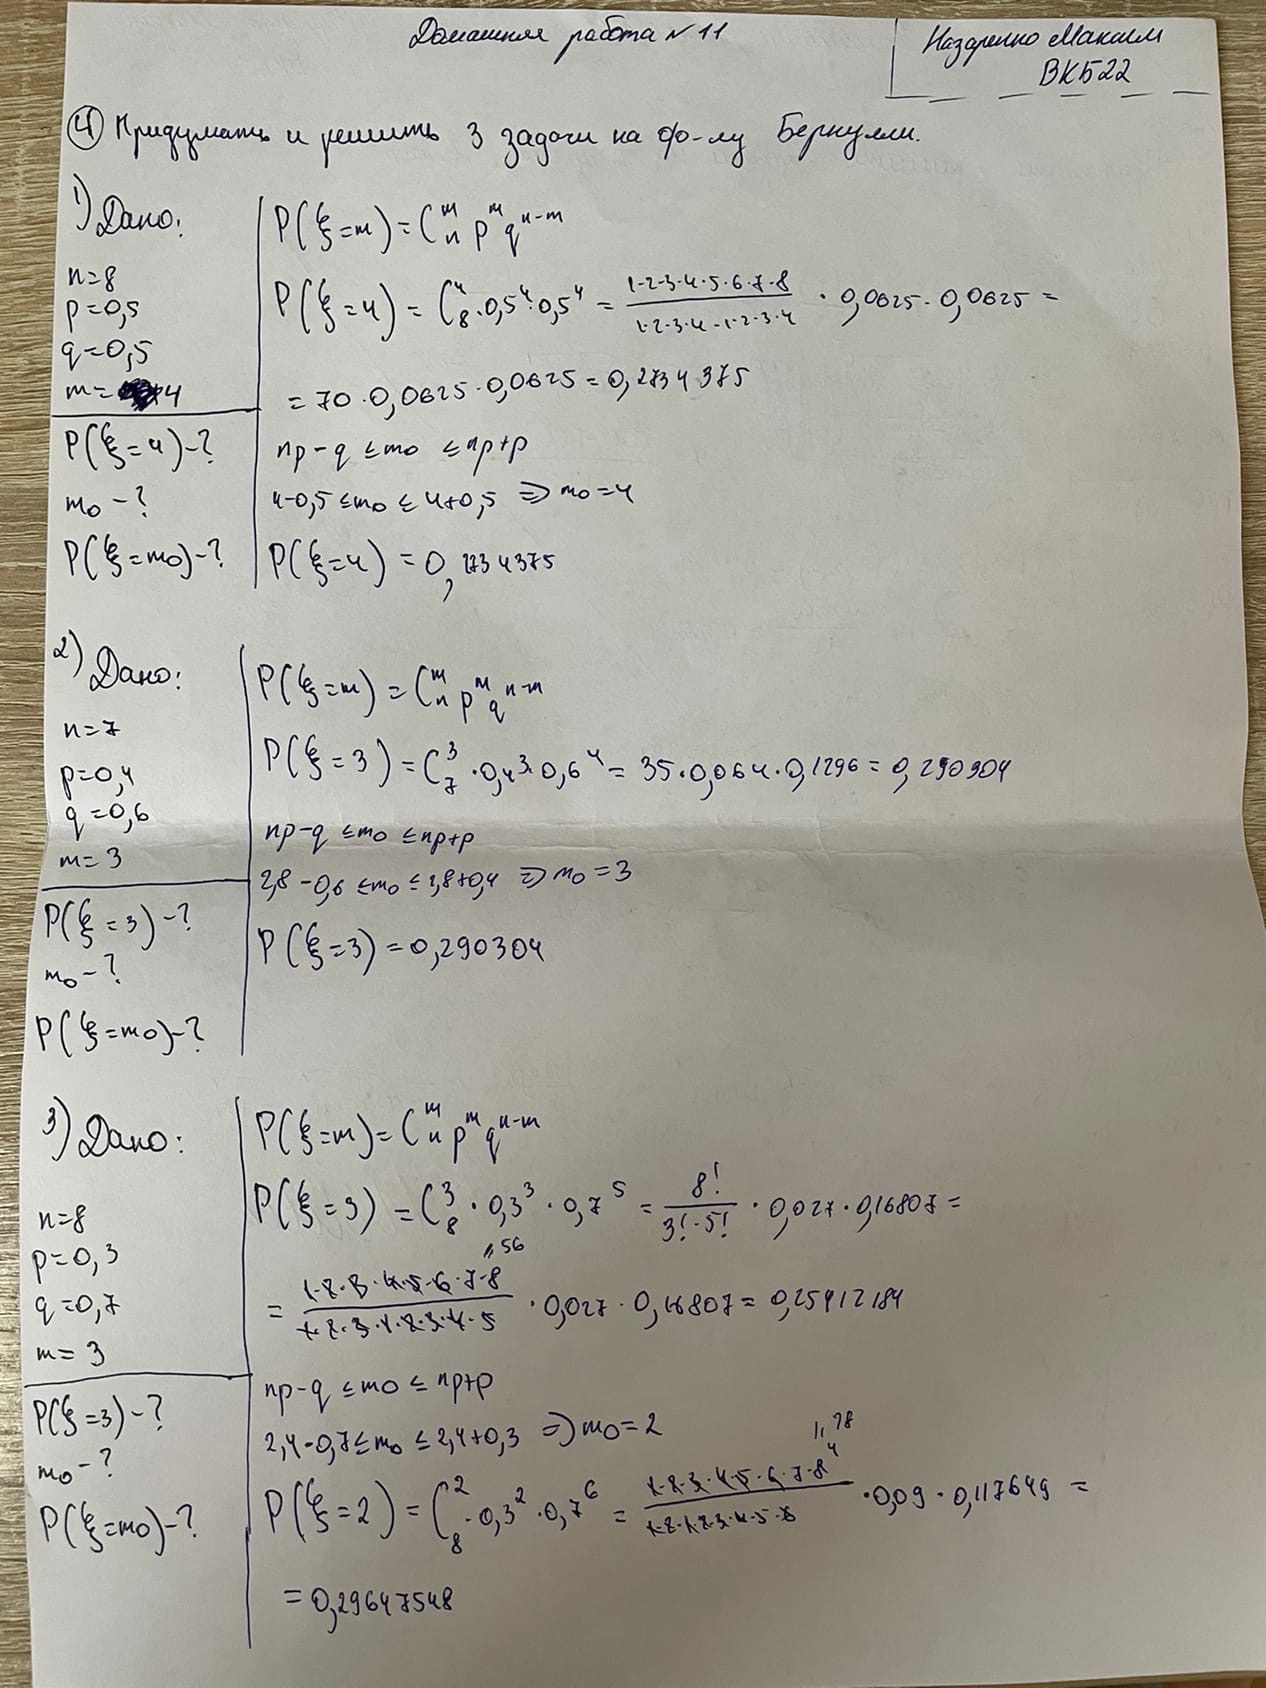 Домашняя работа №11
Назаренко Максим
ВКБ22
④ Придумать и решить 3 задачи на ф-лу Бернулли.
1) Дано:
n=8
p=0,5
q=0,5
m=4
P(ξ=4)-?
m₀-?
P(ξ=m₀)-?
P(ξ=m)=Cₙᵐ pᵐ qⁿ⁻ᵐ
P(ξ=4)=C₈⁴·0,5⁴·0,5⁴=(1·2·3·4·5·6·7·8)/(1·2·3·4·1·2·3·4)·0,0625·0,0625=
=70·0,0625·0,0625=0,2734375
np-q≤m₀≤np+p
4-0,5≤m₀≤4+0,5 ⇒ m₀=4
P(ξ=4)=0,2734375
2) Дано:
n=7
p=0,4
q=0,6
m=3
P(ξ=3)-?
m₀-?
P(ξ=m₀)-?
P(ξ=m)=Cₙᵐ pᵐ qⁿ⁻ᵐ
P(ξ=3)=C₇³·0,4³·0,6⁴=35·0,064·0,1296=0,290304
np-q≤m₀≤np+p
2,8-0,6≤m₀≤2,8+0,4 ⇒ m₀=3
P(ξ=3)=0,290304
3) Дано:
n=8
p=0,3
q=0,7
m=3
P(ξ=3)-?
m₀-?
P(ξ=m₀)-?
P(ξ=m)=Cₙᵐ pᵐ qⁿ⁻ᵐ
P(ξ=3)=C₈³·0,3³·0,7⁵=8!/(3!·5!)·0,027·0,16807=
=56
=(1·2·3·4·5·6·7·8)/(1·2·3·1·2·3·4·5)·0,027·0,16807=0,25412184
np-q≤m₀≤np+p
2,4-0,7≤m₀≤2,4+0,3 ⇒ m₀=2
=28
4
P(ξ=2)=C₈²·0,3²·0,7⁶=(1·2·3·4·5·6·7·8)/(1·2·1·2·3·4·5·6)·0,09·0,117649=
=0,29647548